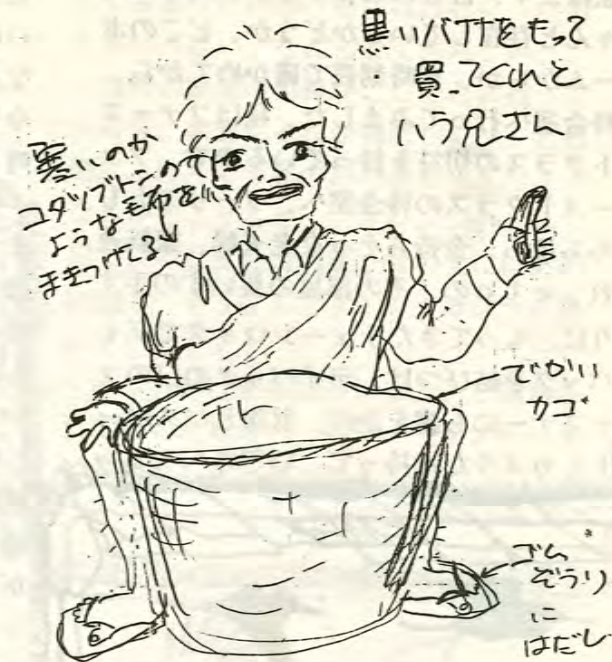 黒いバナナをもって
買ってくれと
いう兄さん
寒いのか
コタツブトンの
ような毛布を
まきつけてる
でかい
カゴ
ゴム
ぞうり
に
はだし